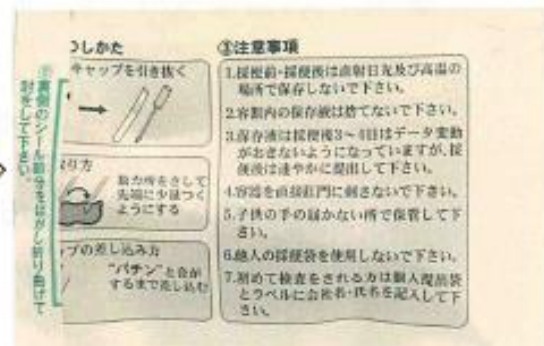 ①裏側のシール部分をはがし折り曲げて
封をして下さい。
のしかた
キャップを引き抜く
とり方
数カ所をさして
先端に少量つく
ようにする
ップの差し込み方
"パチン"と音が
するまで差し込む
③注意事項
1.採便前・採便後は直射日光及び高温の
場所で保存しないで下さい。
2.容器内の保存液は捨てないで下さい。
3.保存液は採便後3〜4日はデータ変動
がおきないようになっていますが、採
便後は速やかに提出して下さい。
4.容器を直接肛門に刺さないで下さい。
5.子供の手の届かない所で保管して下
さい。
6.他人の採便袋を使用しないで下さい。
7.初めて検査をされる方は個人提出袋
とラベルに会社名・氏名を記入して下
さい。